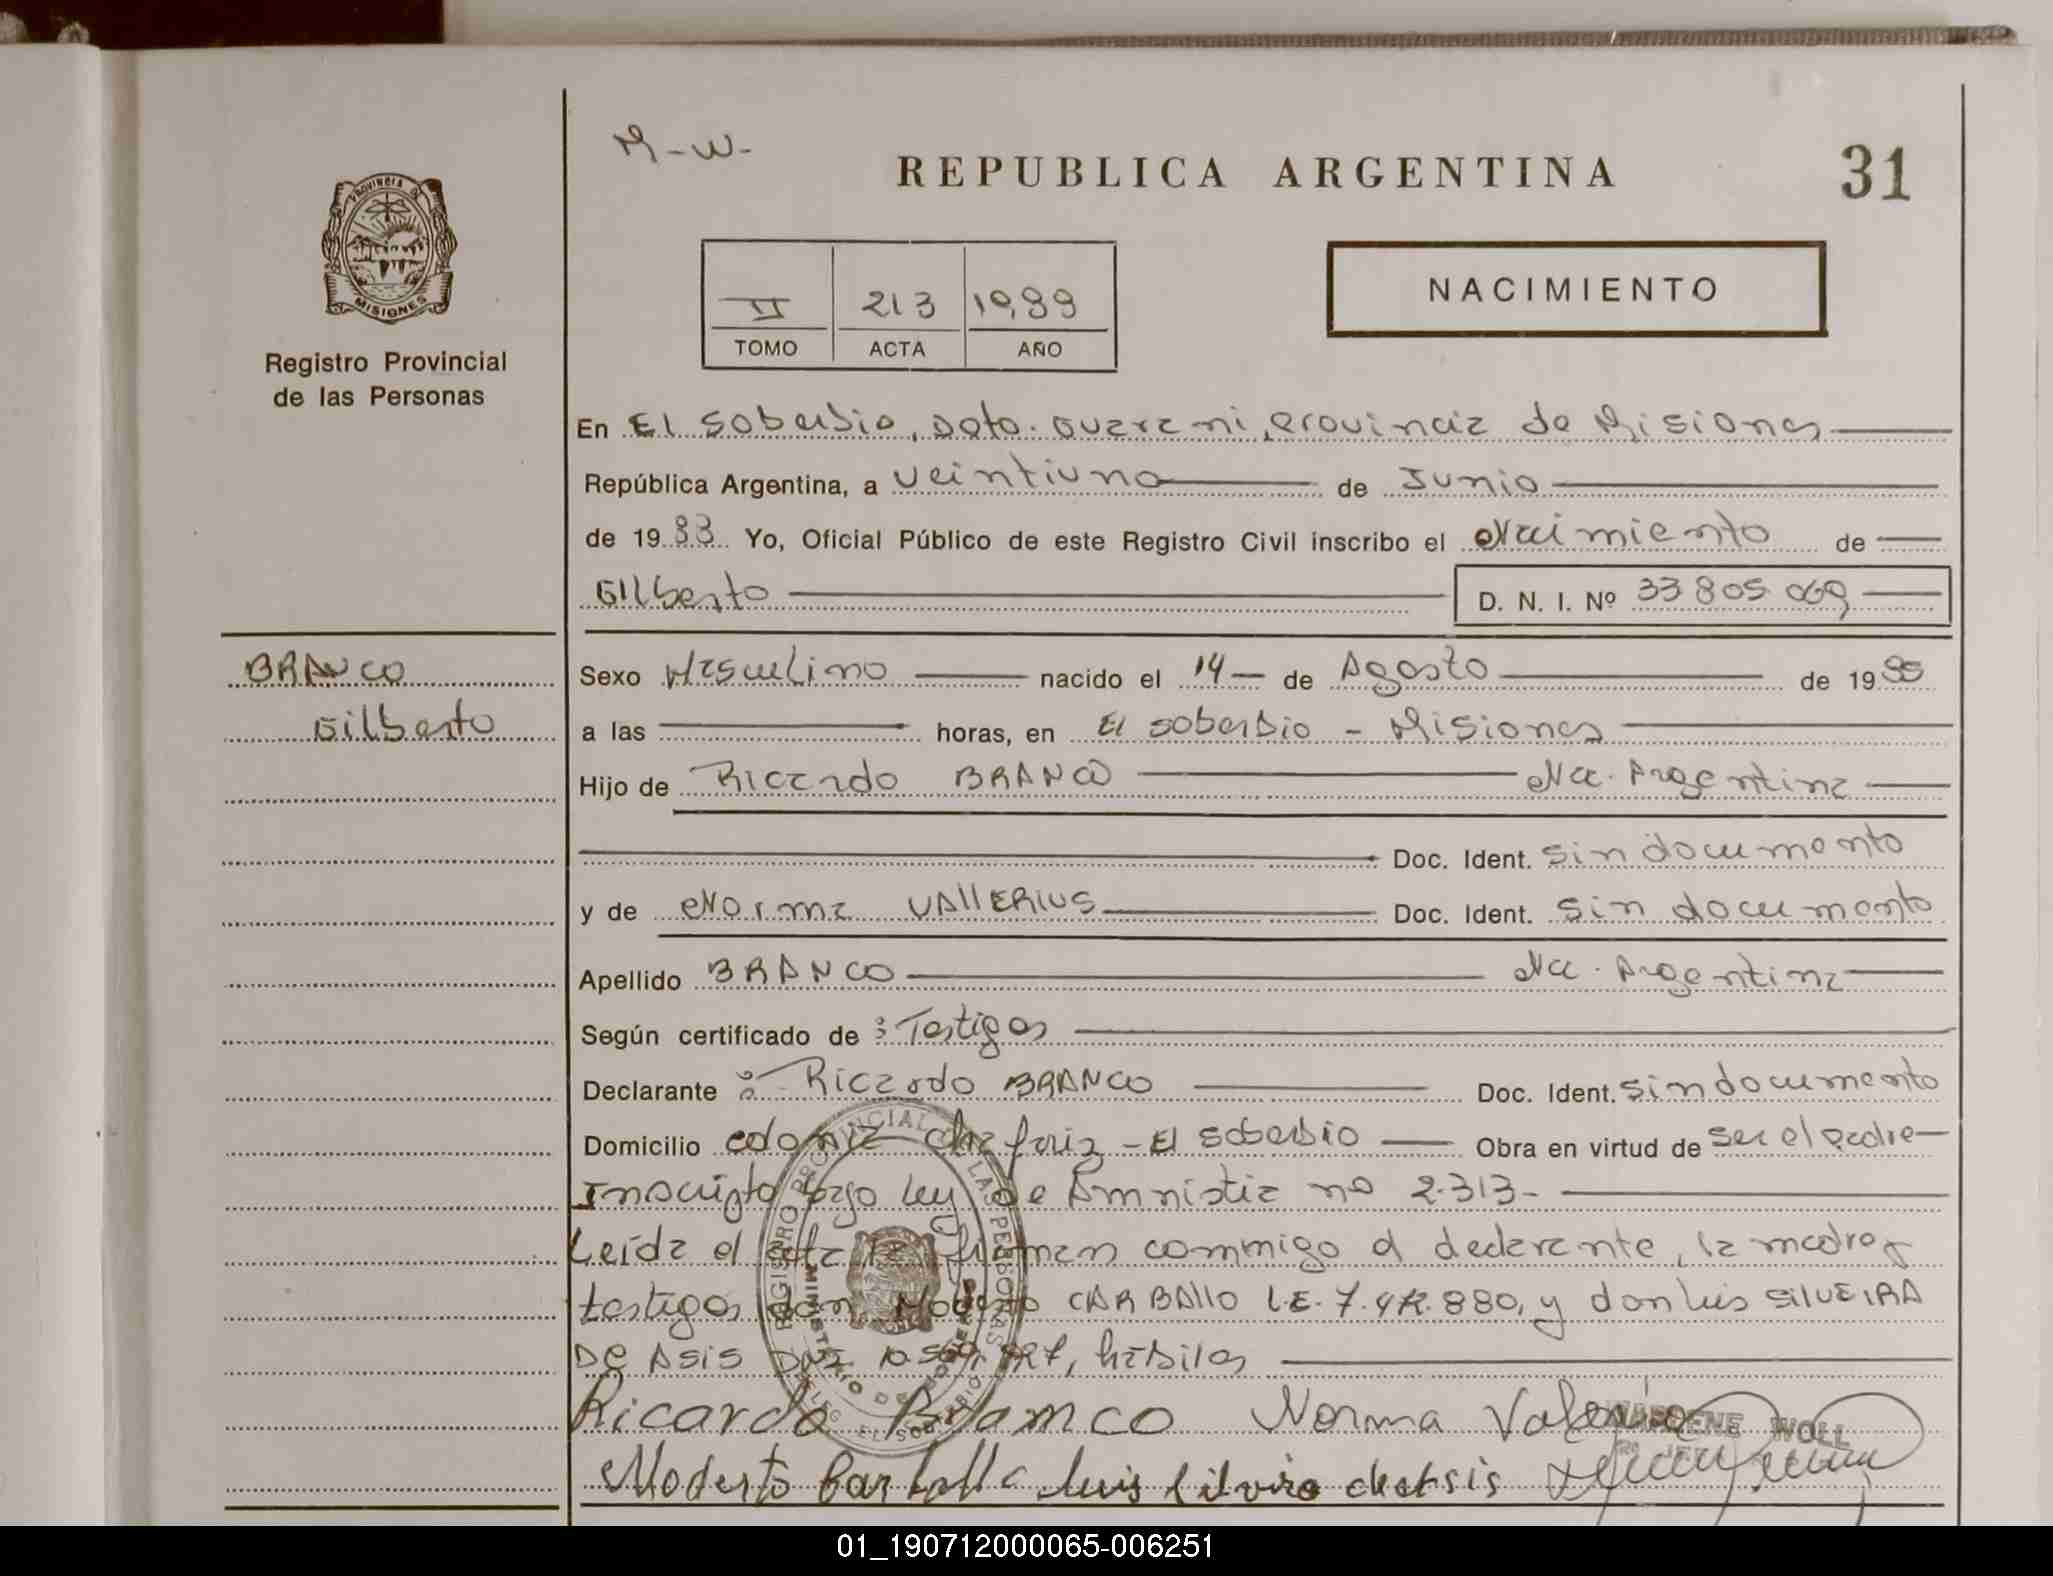 M-W-
REPUBLICA ARGENTINA
31
PROVINCIA DE
MISIONES
Registro Provincial
de las Personas
II 213 1989
TOMO ACTA AÑO
NACIMIENTO
En El Soberbio, Dpto. Guarani, Provincia de Misiones
República Argentina, a veintiuno de Junio
de 19 89 Yo, Oficial Público de este Registro Civil inscribo el Nacimiento de
Gilberto D. N. I. Nº 33 805 069
BRANCO
Gilberto
Sexo Masculino nacido el 14 de Agosto de 19
a las horas, en El Soberbio - Misiones
Hijo de Ricardo BRANCO Nac. Argentina
Doc. Ident. sin documento
y de Norma VALLERIUS Doc. Ident. sin documento
Apellido BRANCO Nac. Argentina
Según certificado de : Testigos
Declarante : Ricardo BRANCO Doc. Ident. sin documento
Domicilio colonia Chafariz - El Soberbio Obra en virtud de ser el padre
Inscripto bajo ley de Amnistia no 2.313-
Leida el acta la firman conmigo el declarante, la madre y
testigos don Modesto CARBALLO L.E. 7. 880, y don Luis SILVEIRA
DE ASIS DNI habiles
REGISTRO PROVINCIAL DE LAS PERSONAS
MINISTERIO DE GOBIERNO
DELEG. EL SOBERBIO
Ricardo Bramco Norma
MARLENE WOLL
Modesto Carballo Luis Silvira de Asis
01_190712000065-006251